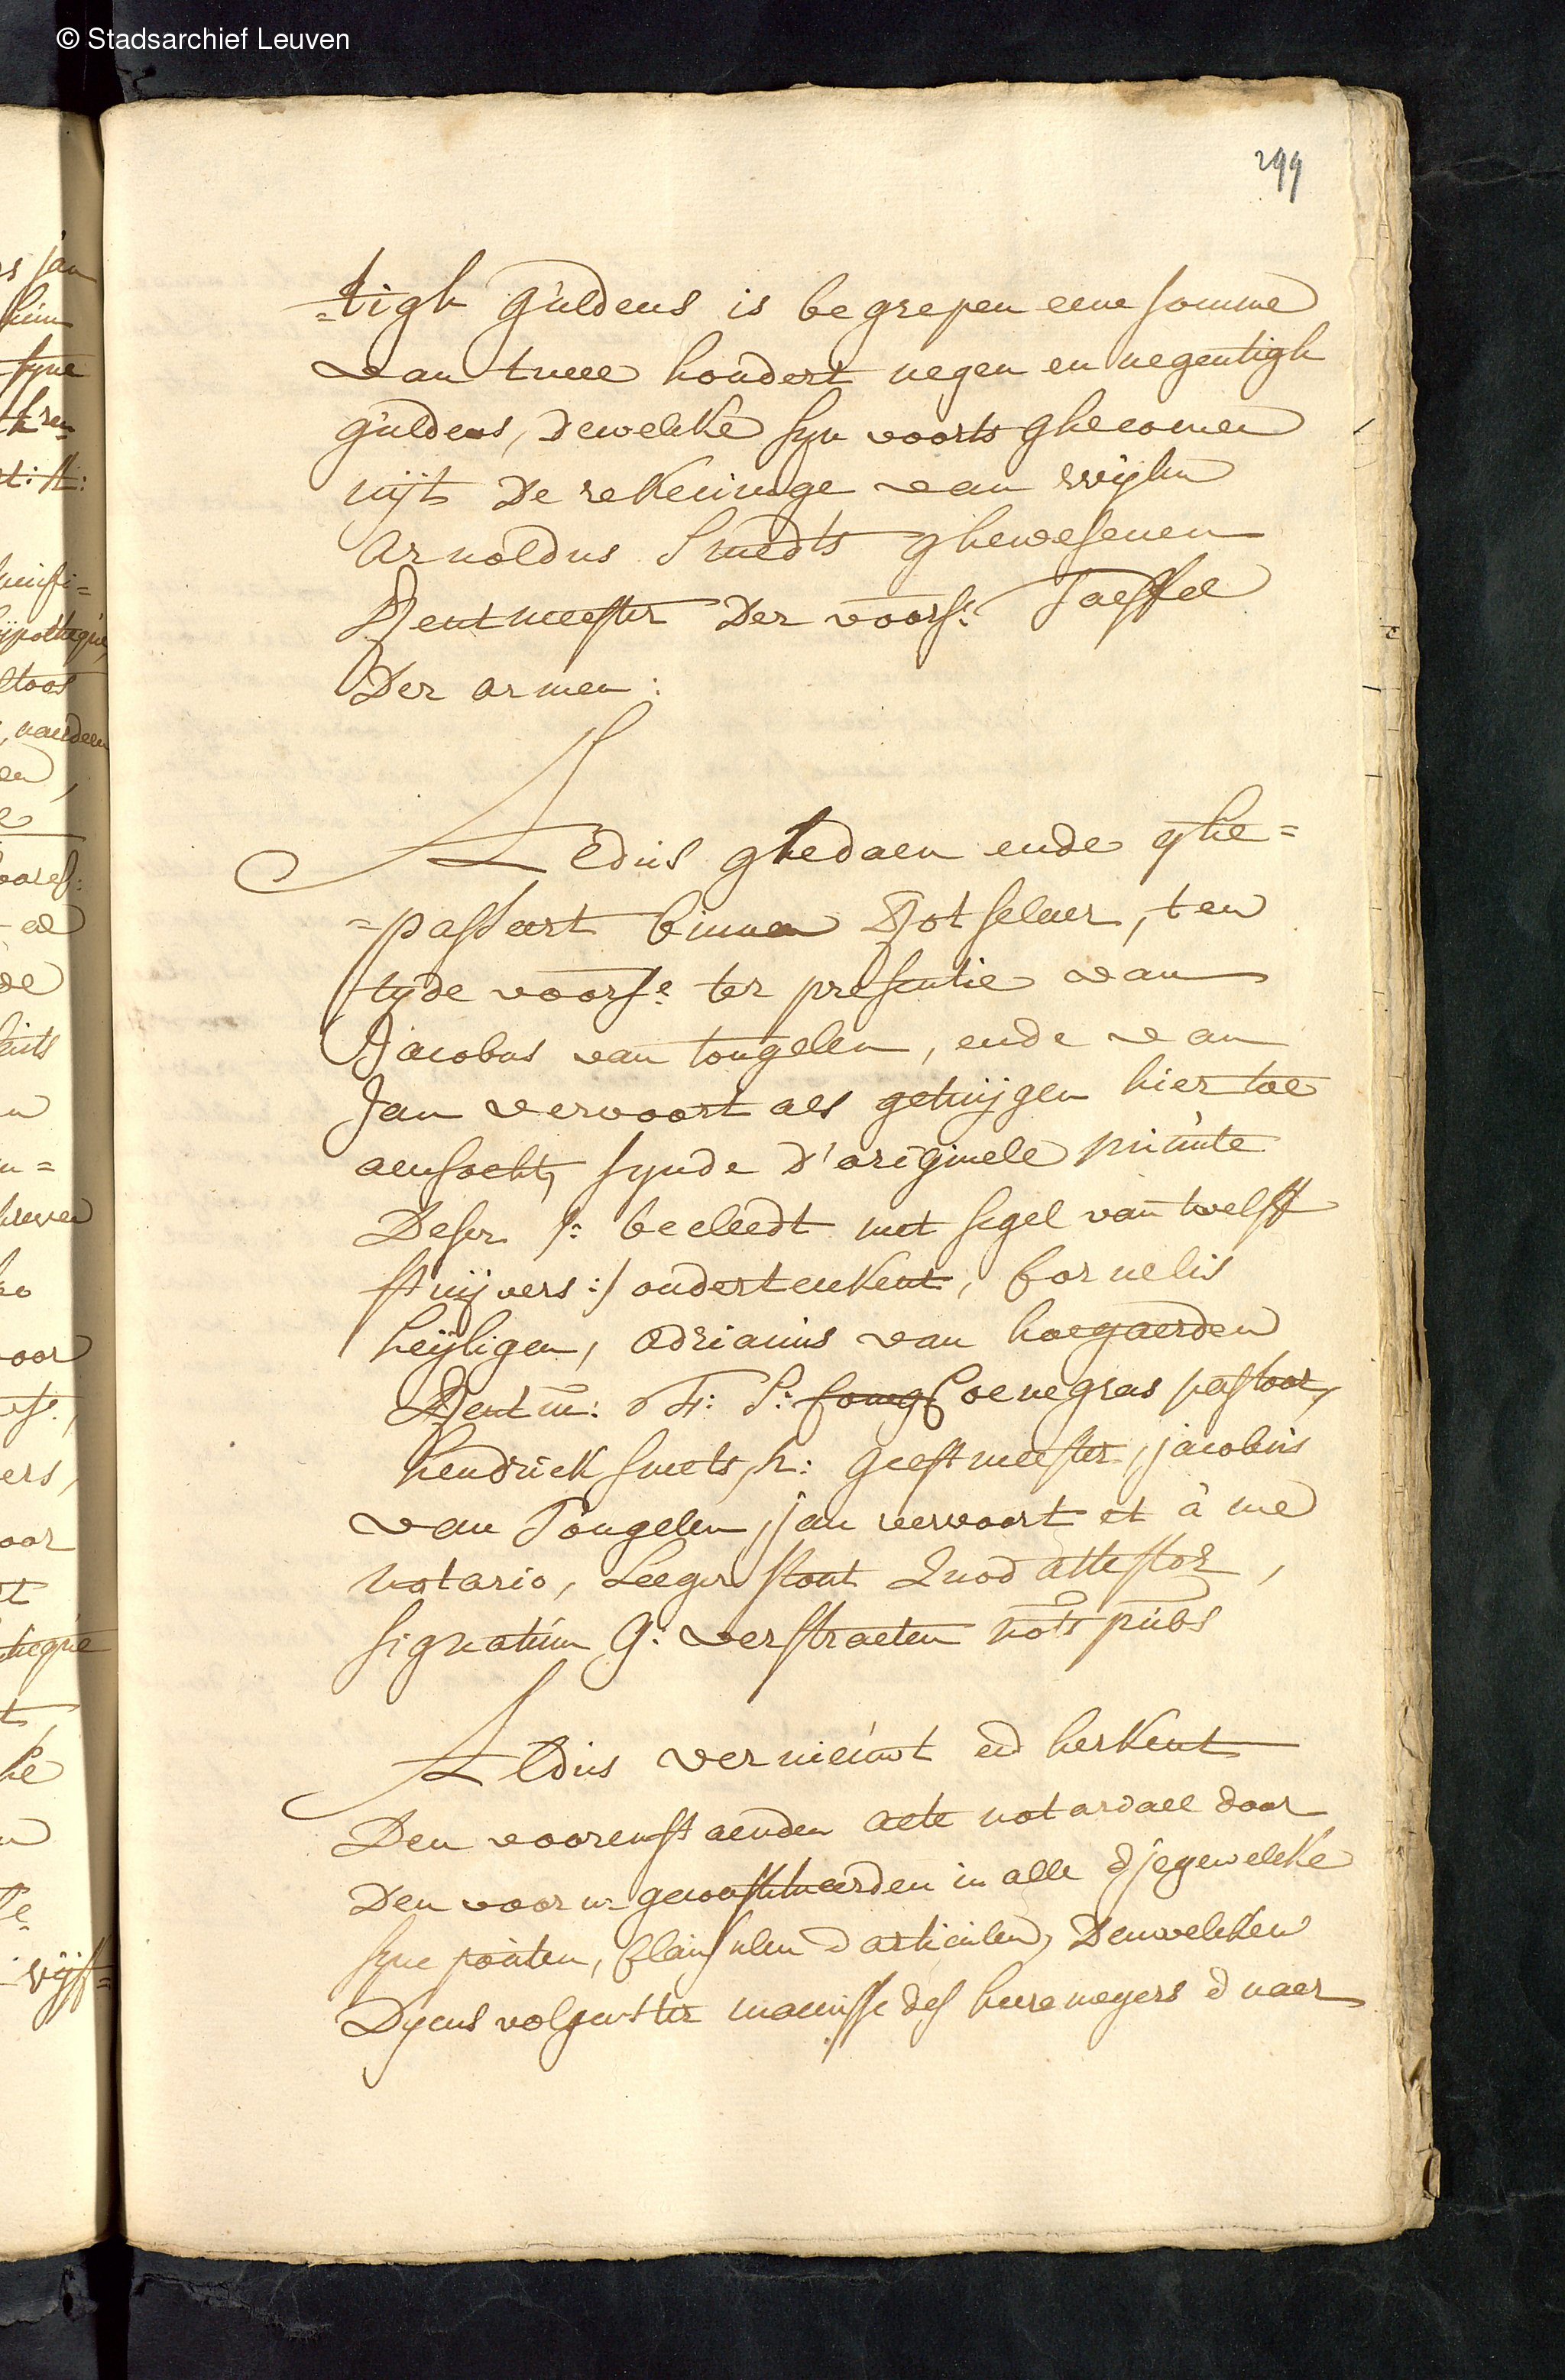 © Stadsarchief Leuven
299
=tigh guldens is begrepen eene somme
van twee hondert negen en negentigh
guldens, dewelcke syn voorts ghecomen
uijt de rekeninge van wijlen
Arnoldus Smedts ghewesenen
Rentmeester der voors: Taeffel
der armen:
Aldus ghedaen ende ghe=
=passeert binnen Rotselaer, ten
tyde voorse ter presentie van
Jacobus van tongelen, ende van
Jan vervoort als getuijgen hier toe
aensocht, synde d'originele minute
deser /: becleedt met segel van twelff
stuijvers :/ onderteekent, Cornelis
heijligen, Adrianus van hoegaerden
Rentm: F: S: Coenegras pastoor,
hendrick smets, h: geestmeester, jacobus
van Tongelen, jan vervoort et à me
notario, Leeger stont Quod attestor,
signatum G: verstraeten nots pubs
Aldus vernieuwt en herkent
Den voorenstaenden acte notariael door
Den voorn geconstitueerden in alle & jegewelcke
syne pointen, clausulen & articulen, Denwelcken
Dyens volgens ter manisse des heere meyers & naer